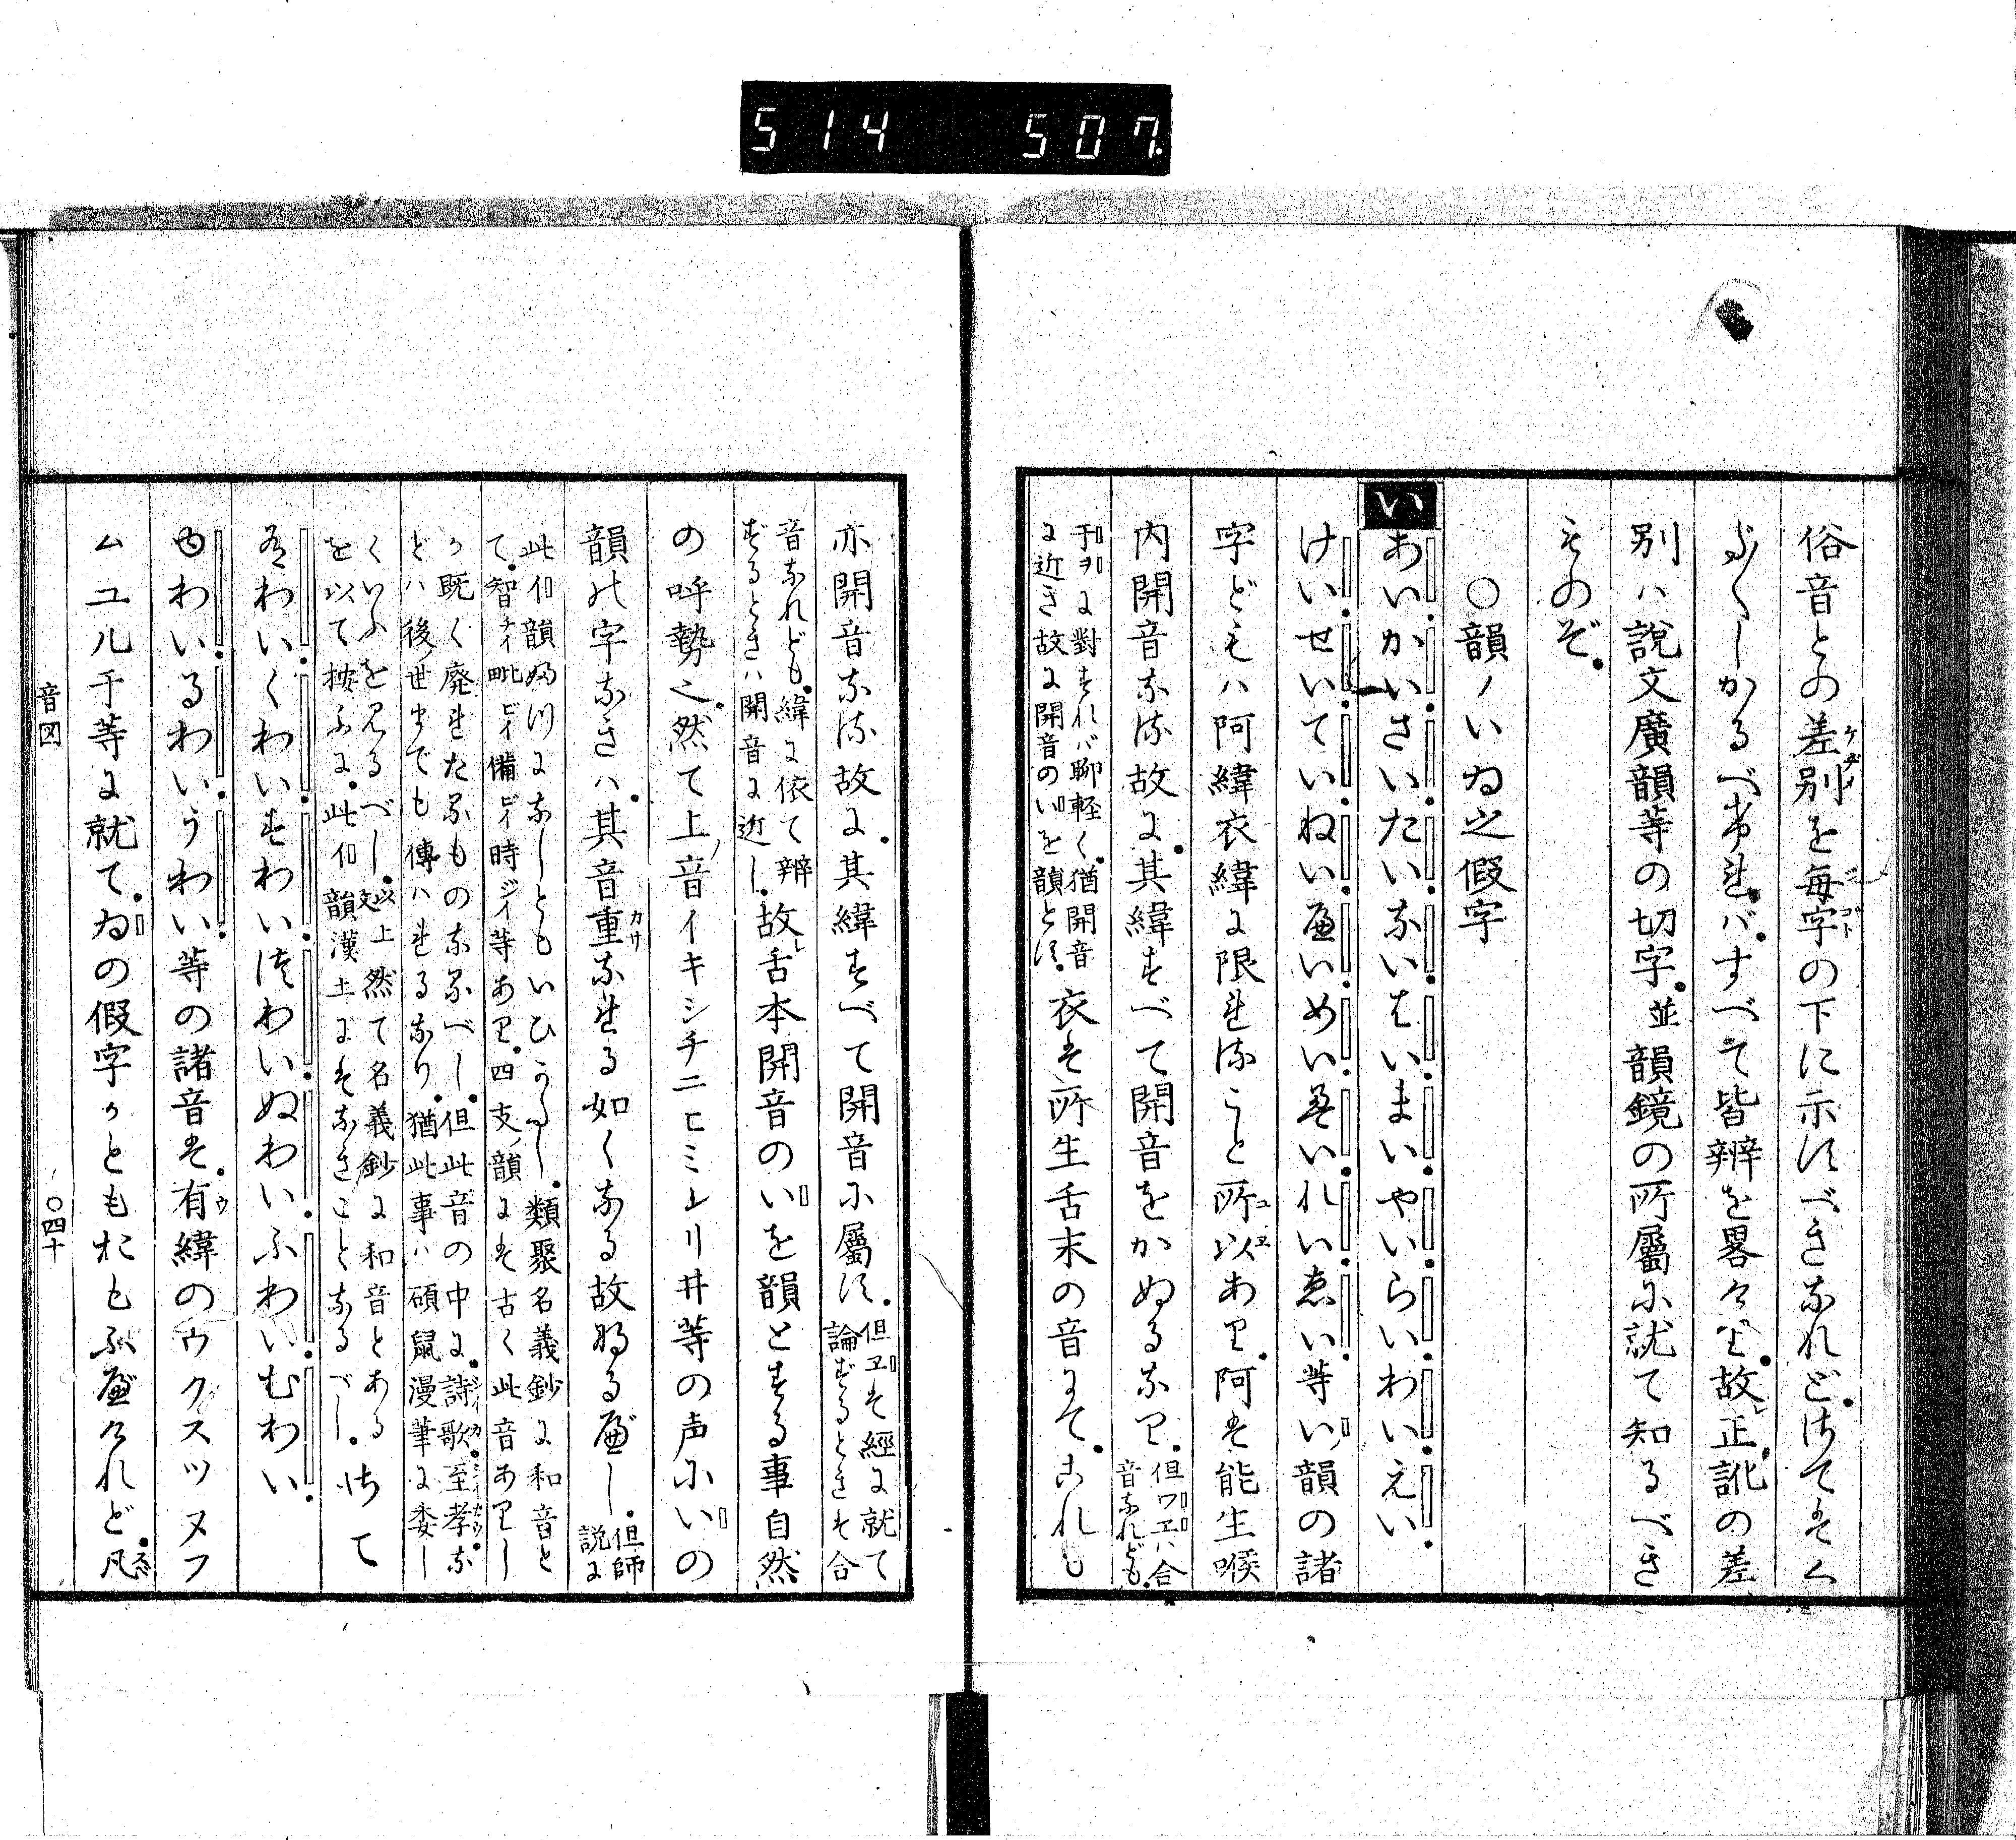 514 507
俗音との差別を毎字の下に示すべきなれどさてはく
だ〳〵しかるべければすべて皆辨を畧々り故正訛の差
別ハ説文廣韻等の切字並韻鏡の所屬に就て知るべき
ものぞ
○韻ノいゐ之假字
い
あいかいさいたいないはいまいやいらいわいえい
けいせいていねいへいめいえいれいゑい等い韻の諸
字どもハ阿緯衣緯に限れること所以あり阿は能生喉
内開音なる故に其緯すべて開音をかぬるなり但ワヱハ合音なれども
于ヲに對すれバ聊軽く猶開音に近き故に開音のいを韻とす衣は所生舌末の音にてこれも
亦開音なる故に其緯すべて開音に屬す但ヱは經に就て論ずるときは合
音なれども緯に依て辨ずるときハ開音に近し故舌本開音のいを韻とする事自然
の呼勢也然て上音イキシチニヒミレリヰ等の声にいの
韻の字なきハ其音重なれる如くなる故なるべし但師説に
此イ韻ぬ川になしともいひがたし類聚名義鈔に和音と
て智チイ毗ビイ備ビイ時ジイ等あり四支ノ韻には古く此音ありし
が既く廃れたるものなるべし但此音の中に詩歌至孝な
どハ後世までも傳ハれるなり猶此事ハ碩鼠漫筆に委し
くいふを見るべし以上文然て名義鈔に和音とある
を以て按ふに此イ韻漢土にはなきことなるべしさて
るわいくわいすわいつわいぬわいふわいむわい
ゆわいるわいうわい等の諸音は有緯のウクスツヌフ
ムユル于等に就てゐの假字かともおもふべけれど凡
音図
○四十